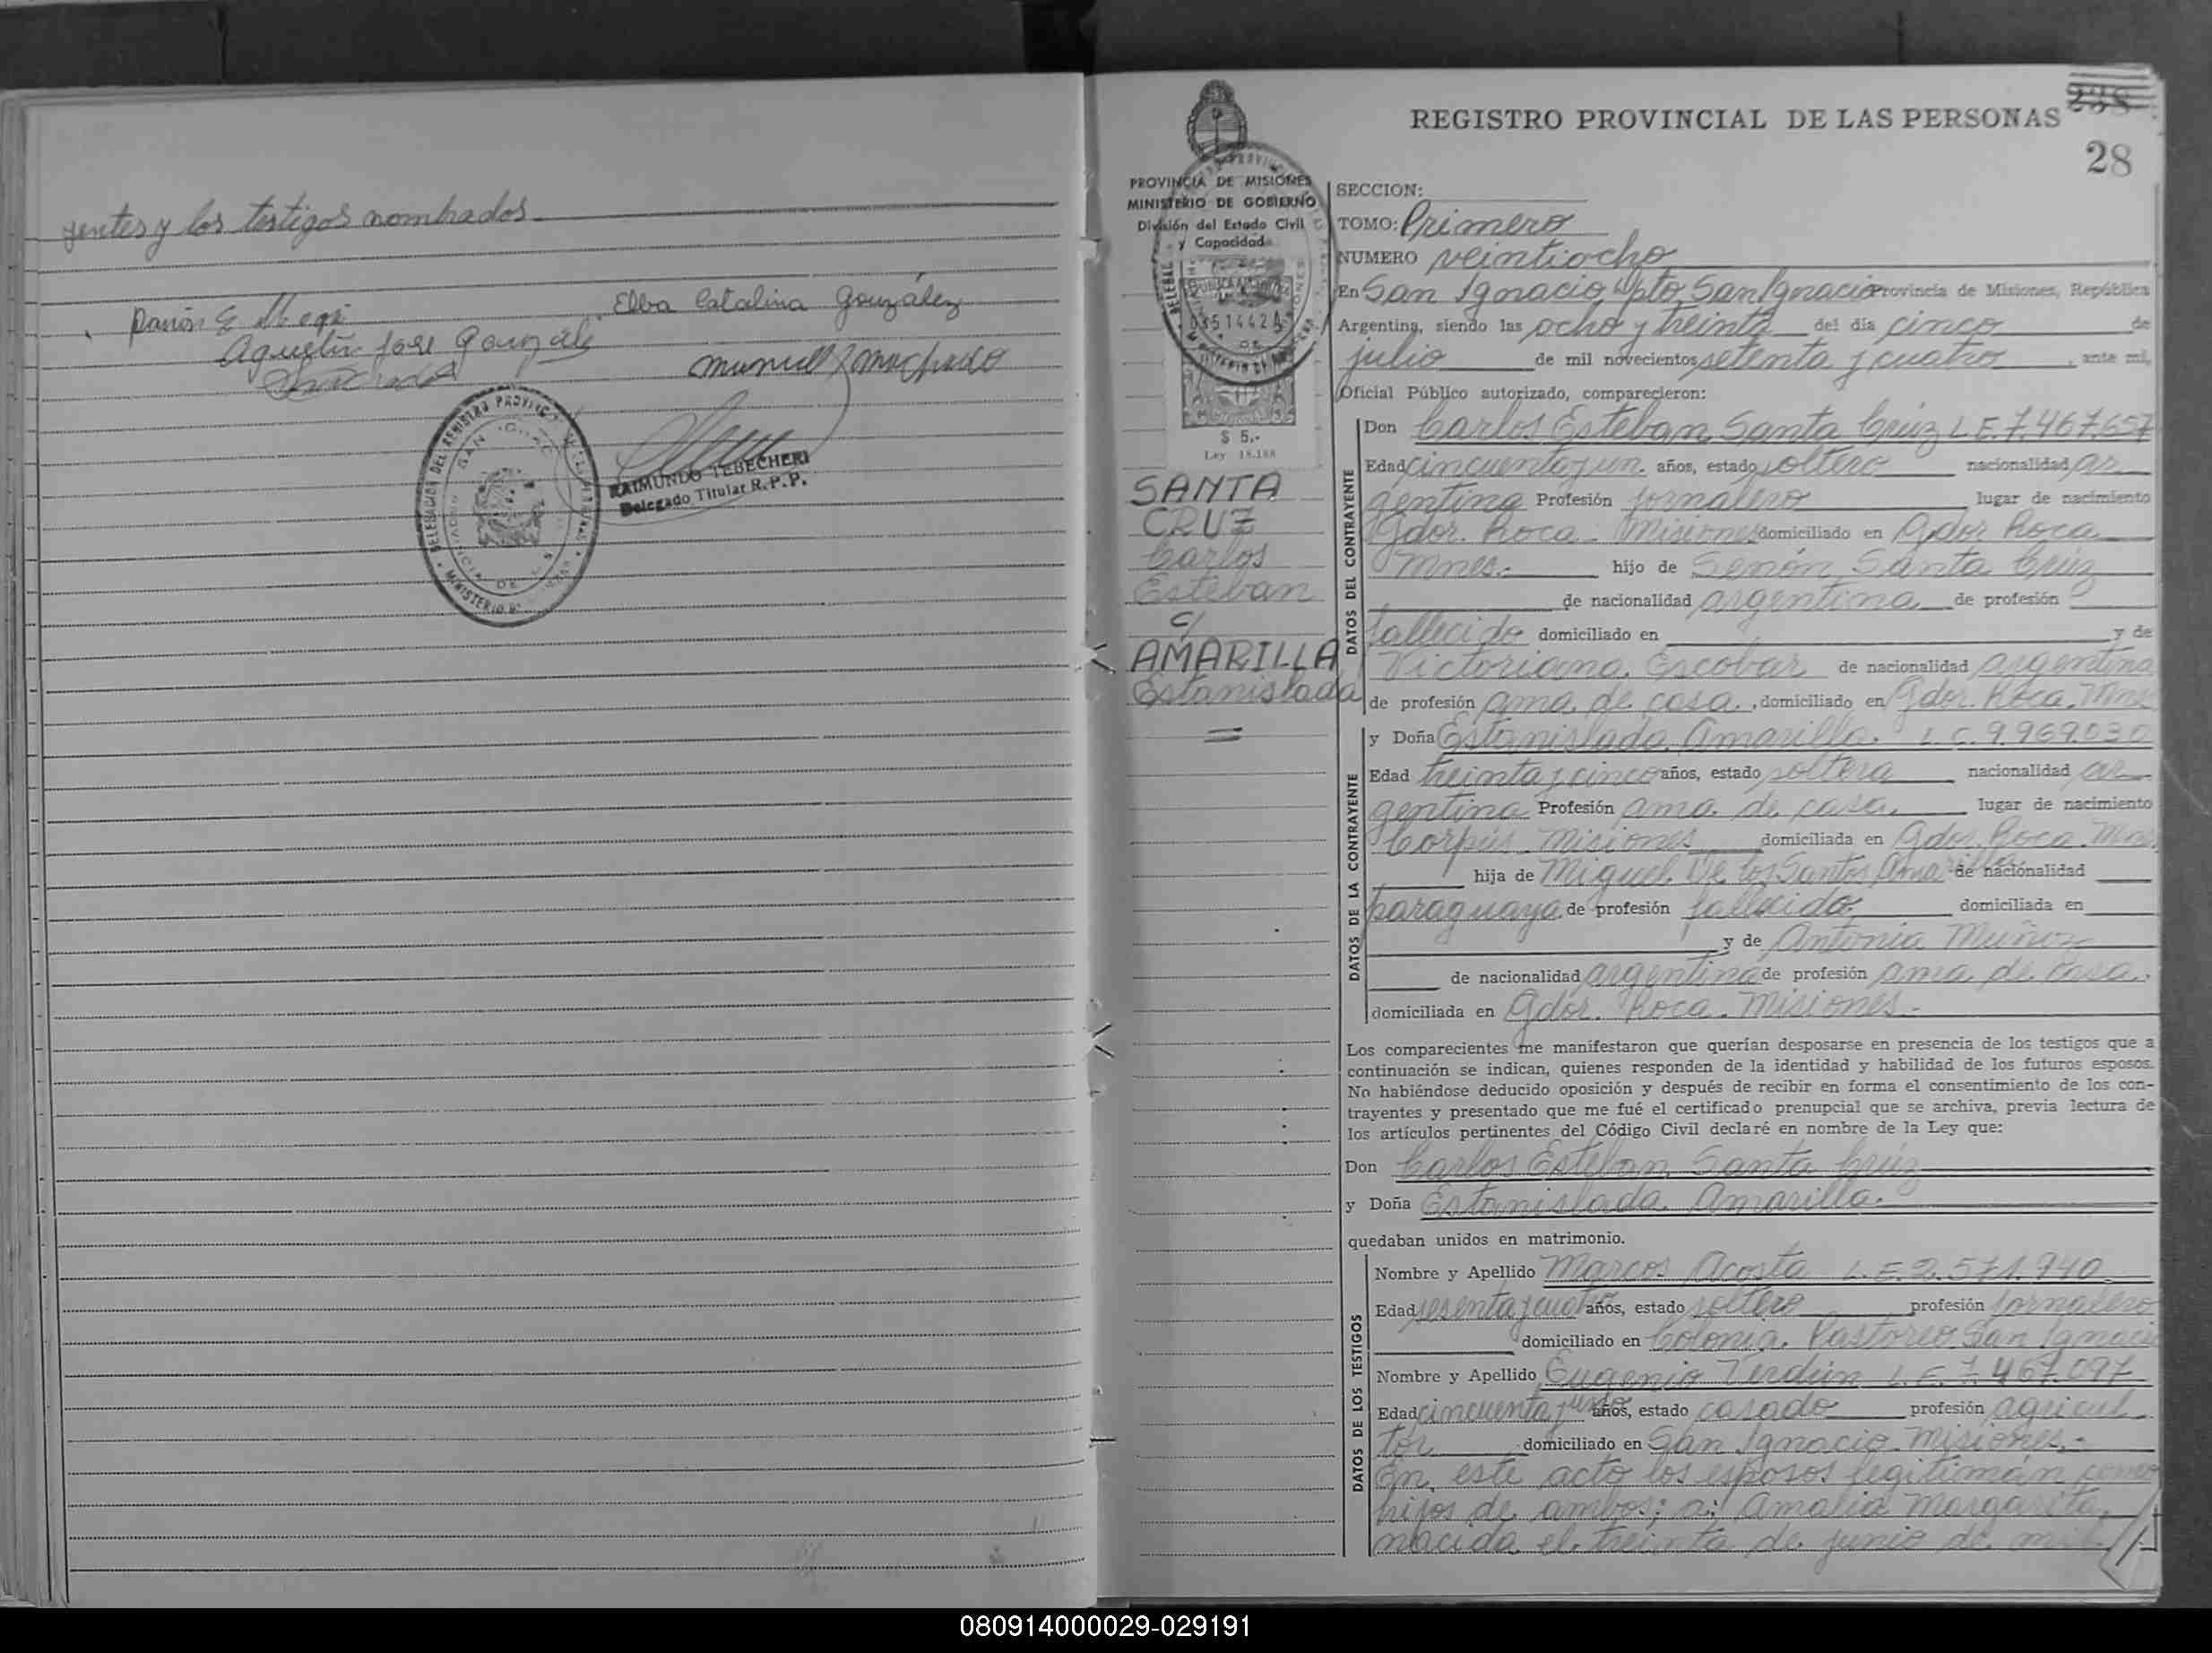 yentes y los testigos nombrados
Elba Catalina González
Agustín José González
RAIMUNDO TEBECHERI
Delegado Titular R. P. P.
REGISTRO PROVINCIAL DE LAS PERSONAS
238
28
PROVINCIA DE MISIONES
MINISTERIO DE GOBIERNO
División del Estado Civil
y Capacidad
$ 5.-
Ley 18.188
SANTA
CRUZ
Carlos
Esteban
c/
AMARILLA
Estanislada
SECCION:
TOMO: Primero
NUMERO veintiocho
En San Ignacio Dpto. San Ignacio Provincia de Misiones, República
Argentina, siendo las ocho y treinta del día cinco de
julio de mil novecientos setenta y cuatro, ante mí,
Oficial Público autorizado, comparecieron:
DATOS DEL CONTRAYENTE
Don Carlos Esteban Santa Crúz L.E. 7.467.657
Edad cincuenta y un años, estado soltero nacionalidad ar
gentina Profesión jornalero lugar de nacimiento
Gdor. Roca - Misiones domiciliado en Gdor Roca
Mnes.- hijo de Senón Santa Crúz
de nacionalidad argentina de profesión
fallecido domiciliado en y de
Victoriana Escobar de nacionalidad argentina
de profesión ama de casa, domiciliado en Gdor. Roca. Mnes
DATOS DE LA CONTRAYENTE
y Doña Estanislada Amarilla. L.C. 9.969.030
Edad treinta y cinco años, estado soltera nacionalidad ar
gentina Profesión ama de casa. lugar de nacimiento
Corpús - Misiones domiciliada en Gdor. Roca. Mnes
hija de Miguel De los Santos Amarilla de nacionalidad
paraguaya de profesión fallecido. domiciliada en
y de Antonia Muñoz
de nacionalidad argentina de profesión ama de casa.
domiciliada en Gdor. Roca. Misiones.-
Los comparecientes me manifestaron que querían desposarse en presencia de los testigos que a
continuación se indican, quienes responden de la identidad y habilidad de los futuros esposos.
No habiéndose deducido oposición y después de recibir en forma el consentimiento de los con-
trayentes y presentado que me fué el certificado prenupcial que se archiva, previa lectura de
los artículos pertinentes del Código Civil declaré en nombre de la Ley que:
Don Carlos Esteban Santa Crúz
y Doña Estanislada Amarilla.
quedaban unidos en matrimonio.
DATOS DE LOS TESTIGOS
Nombre y Apellido Marcos Acosta L.E. 2.571.940
Edad sesenta y cuatro años, estado soltero profesión jornalero
domiciliado en Colonia Pastoreo San Ignacio
Nombre y Apellido Eugenio Verdún L.E. 7.467.097
Edad cincuenta y uno años, estado casado profesión agricul
tor domiciliado en San Ignacio - Misiones.-
En este acto los esposos legitimán como
hijos de ambos; a: Amalia Margarita,
nacida el treinta de junio de mil
080914000029-029191